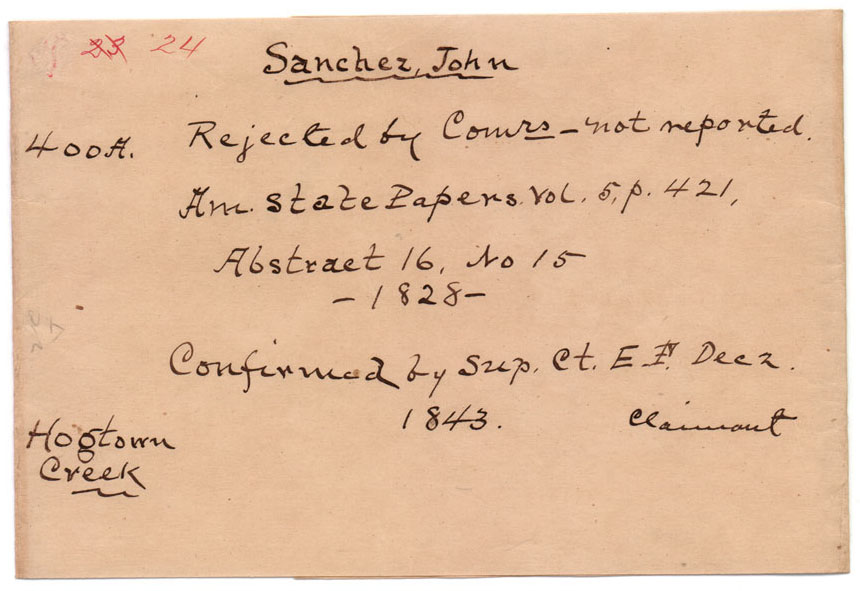 23 24
Sanchez, John
400A. Rejected by Comrs - not reported.
Am. State Papers. Vol. 5, p. 421,
Abstract 16, No 15
- 1828 -
Confirmed by Sup. Ct. E. F. Dec 2.
1843. Claimant
Hogtown
Creek